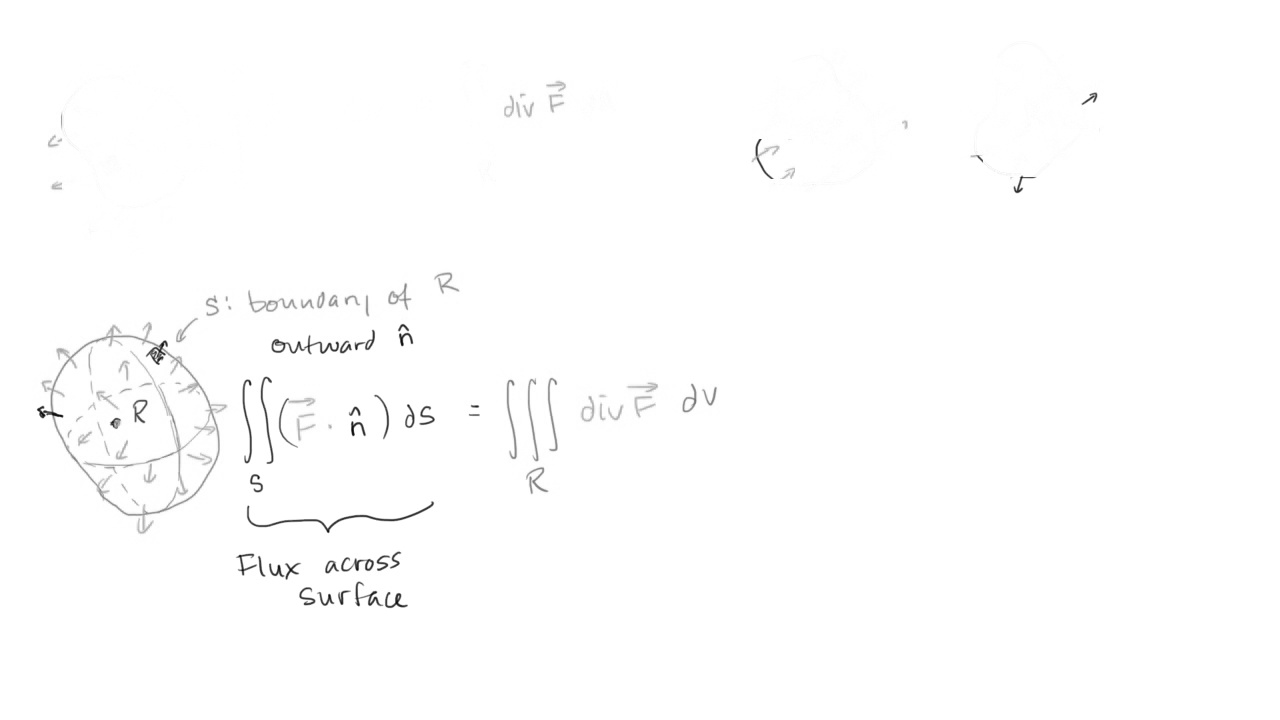 div F⃗
S: boundary of R
outward n̂
R
∬ (F⃗ · n̂) ds = ∭ div F⃗ dv
S R
Flux across
surface